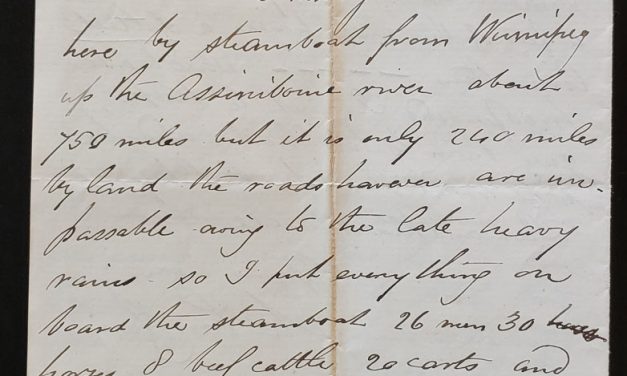 here by steamboat from Winnipeg
up the Assiniboine river about
750 miles but it is only 240 miles
by land the roads however are im-
passable owing to the late heavy
rains so I put everything on
board the steamboat 26 men 30
horses 8 beef cattle 20 carts and